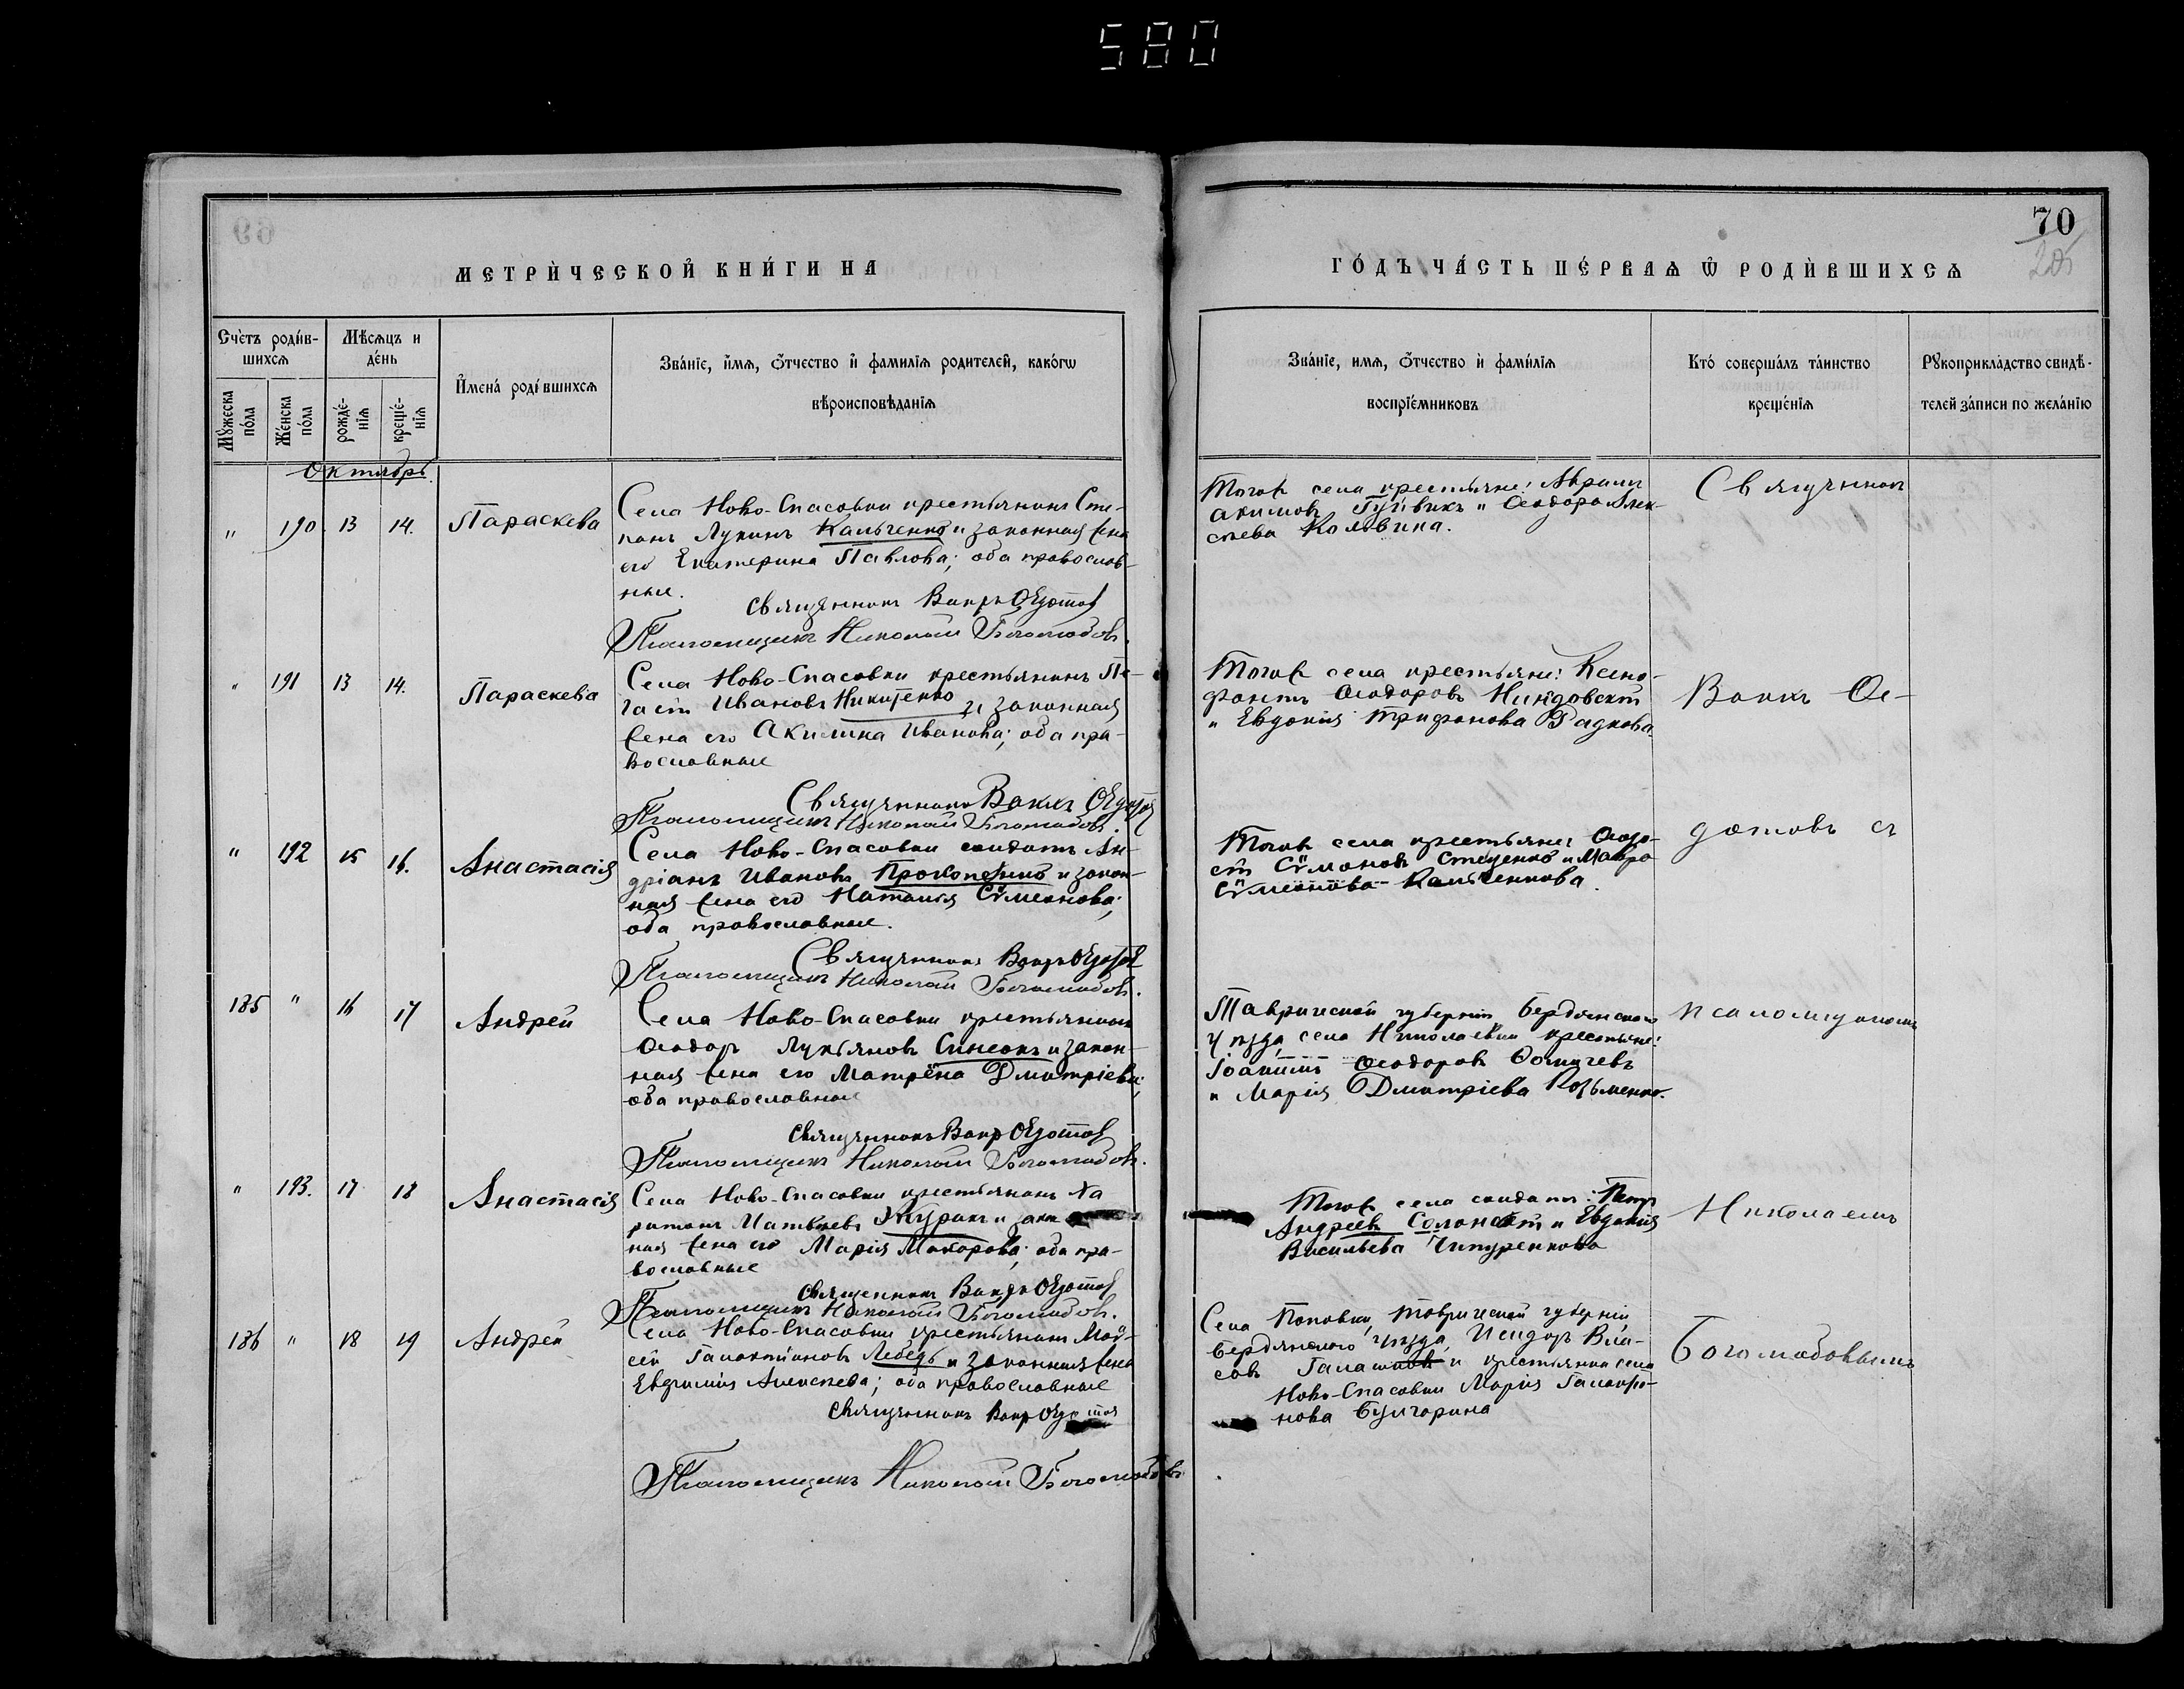 580
70
205
МЕТРИ́ЧЕСКОЙ КНИ́ГИ НА
ГО́ДЪ ЧА́СТЬ ПЕ́РВАѦ Ѿ РОДИ́ВШИХСѦ
Сче́тъ роди́в-
шихсѧ
Мѣ́сѧцъ и
де́нь
Мꙋ́жеска
по́ла
Же́нска
по́ла
рожде́-
нїѧ
креще́-
нїѧ
И҆мена́ роди́вшихсѧ
Зва́нїе, и҆́мѧ, ѻ҆́тчество и҆ фами́лїѧ роди́телей, како́гѡ
вѣроисповѣ́данїѧ
Зва́нїе, и́мѧ, ѻ҆́тчество и҆ фами́лїѧ
воспрїе́мниковъ
Кто́ соверша́лъ та́инство
креще́нїѧ
Рꙋкоприкла́дство свидѣ́-
телей за́писи по жела́нїю
Октябрь.
" 190 13 14. Параскева
Села Ново-Спасовки крестьянинъ Сте-
панъ Лукинъ Кальченко и законная жена
его Екатерина Павлова; оба православ-
ные.
Священникъ Вакхъ Ѳедотов
Псаломщикъ Николай Богомобовъ.
Тогоже села крестьяне:
Акимовъ и Ѳеодора Алек-
сѣева
Священник
" 191 13 14. Параскева
Села Ново-Спасовки крестьянинъ Пе-
Ивановъ Никитенко и законная
жена его Акилина Иванова; оба пра-
вославные
Священникъ Вакхъ Ѳедотов
Псаломщикъ Николай Богомобовъ.
Тогоже села крестьяне: Ксено-
фонтъ Ѳеодоровъ
и Евдокия Трифонова
Вакхъ Ѳе-
" 192 15 16. Анастасія
Села Ново-Спасовки солдатъ Ан-
дріанъ Ивановъ Прокопенко и закон-
ная жена его Наталія Сѵмеонова;
оба православные.
Священникъ Вакхъ Ѳедотов
Псаломщикъ Николай Богомобовъ.
Тогоже села крестьяне: Ѳеодо-
сій Сѵмоновъ Стеценко и Мавра
Сѵмеонова Кальченкова.
дотовъ съ
185 " 16 17 Андрей
Села Ново-Спасовки крестьянинъ
Ѳеодоръ Лукьяновъ Синеокъ и закон-
ная жена его Матрёна Дмитріева;
оба православные
Священникъ Вакхъ Ѳедотов
Псаломщикъ Николай Богомобовъ.
Таврической губерніи Бердянского
уѣзда села Николаевки крестьяне:
Іоакимъ Ѳеодоровъ
и Марія Дмитріева Козьменко.
псаломщикомъ
" 193. 17 18 Анастасія
Села Ново-Спасовки крестьянинъ Ха
ритонъ Матвѣевъ и зако
ная жена его Марія Макарова; оба пра-
вославные
Священникъ Вакхъ Ѳедотов
Псаломщикъ Николай Богомобовъ.
Тогоже села солдатъ: Петръ
Андреевъ и Евдокія
Васильева Чипуренкова
Николаемъ
186 " 18 19 Андрей
Села Ново-Спасовки крестьянинъ Моѵ-
сей Галактіоновъ Лебедь и законная жена
Евфимія Алексѣева; оба православные
Священникъ Вакхъ Ѳедотов
Псаломщикъ Николай Богомобовъ.
Села Поповки, Таврической губерніи
Бердянского уѣзда, Исидоръ Вла-
совъ и крестьянка села
Ново-Спасовки Марія
нова Булгарина
Богомобовымъ